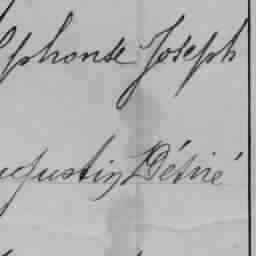 lphonse Joseph
ugustin Désiré